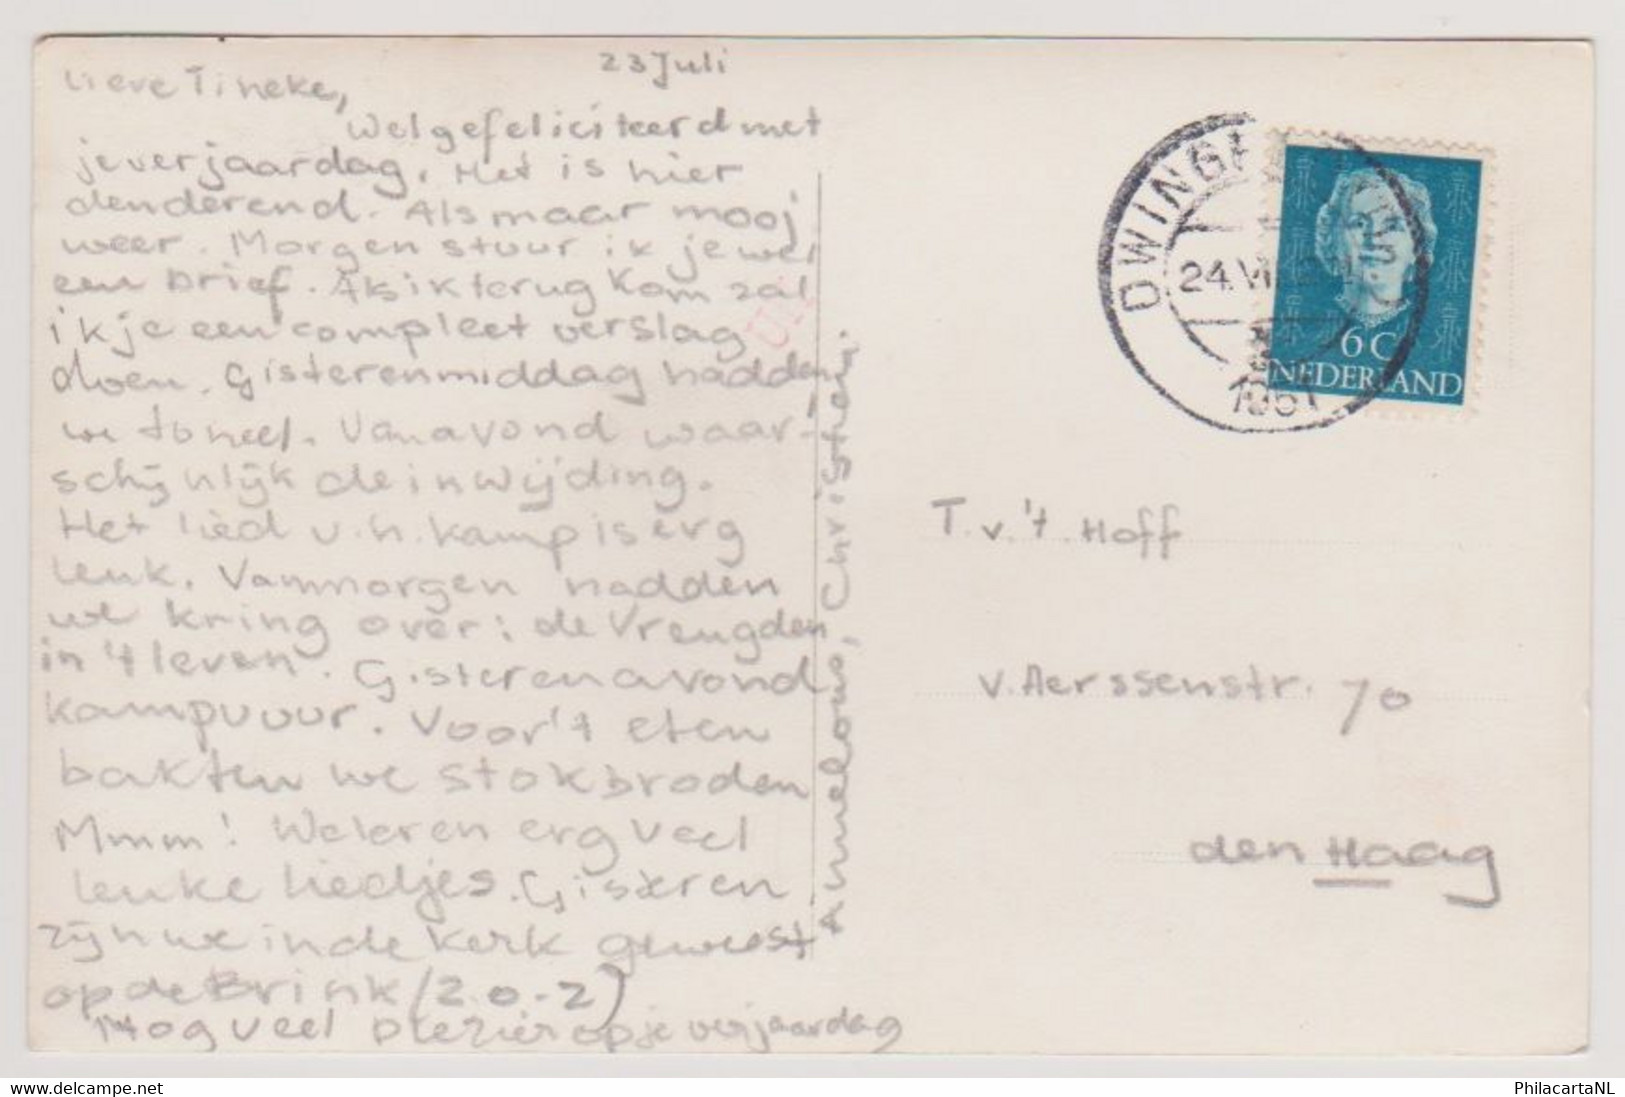 23 Juli
Lieve Tineke,
Wel gefeliciteerd met
je verjaardag. Het is hier
denderend. Als maar mooj
weer. Morgen stuur ik je wel
een brief. Als ik terug kom zal
ik je een compleet verslag
doen. Gisterenmiddag hadden
we toneel. Vanavond waar-
schijnlijk de inwijding.
Het lied v.h. kamp is erg
leuk. Vanmorgen hadden
we kring over: de Vreugden
in 't leven. Gisterenavond
kampvuur. Voor 't eten
bakten we stokbroden
Mmm! We leren erg veel
leuke liedjes. Gisteren
zijn we in de kerk geweest
op de Brink (z.o.z)
Nog veel plezier op je verjaardag
Annelous, Christien.
DWINGELOO
24.VII
1951
6 C
NEDERLAND
T. v. 't. Hoff
v. Aerssenstr. 70
den Haag
www.delcampe.net
PhilacartaNL